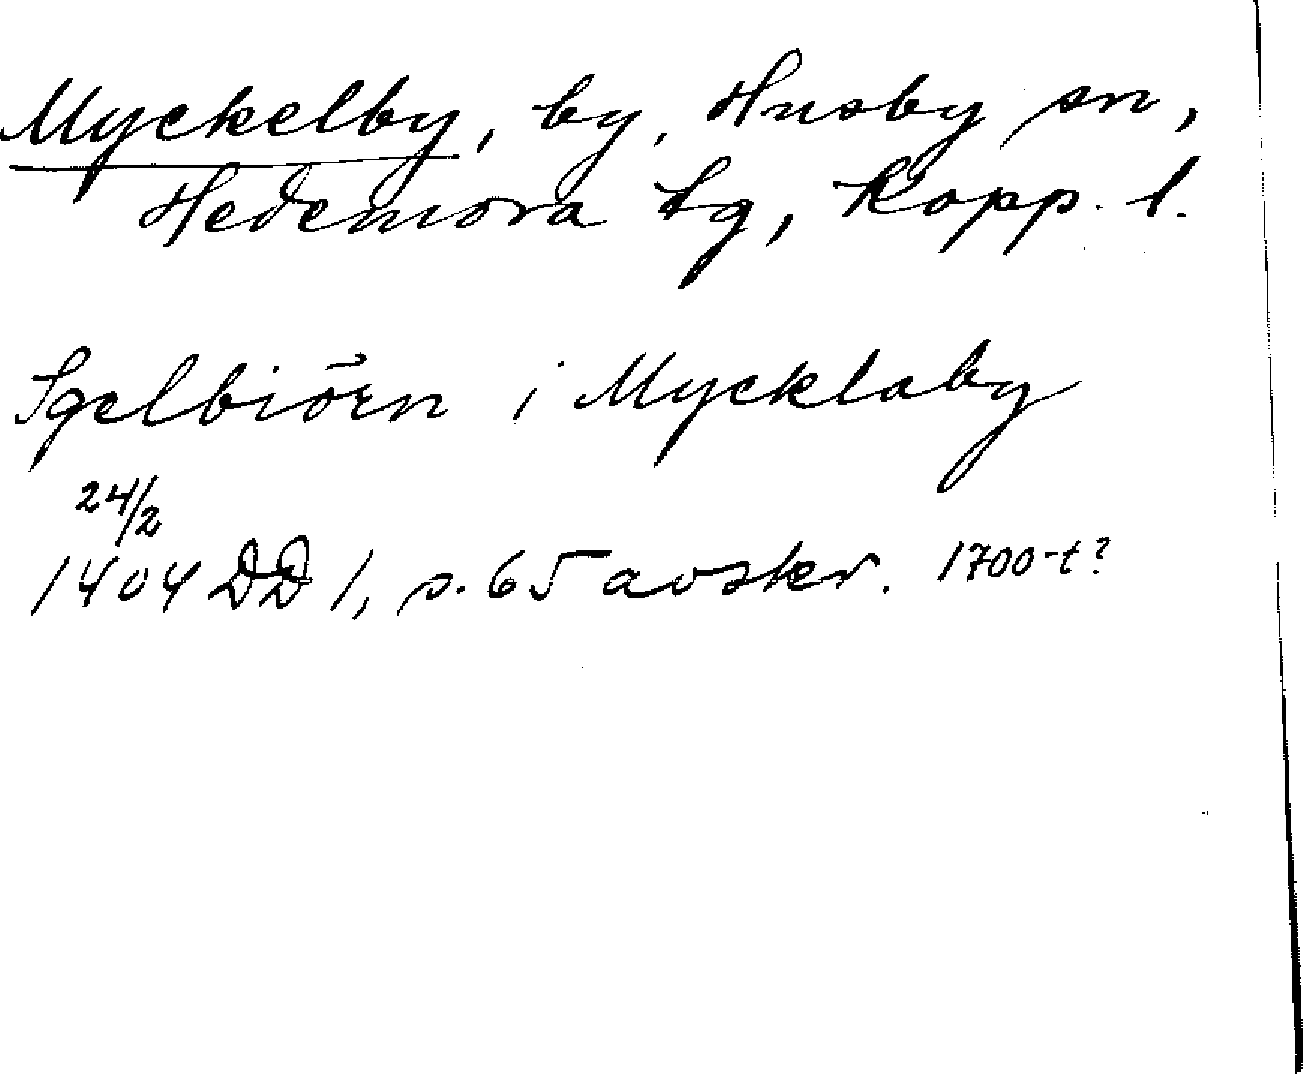 Myckelby, by, Husby sn,
Hedemora tg, Kopp. l.
Igelbiörn i Mycklaby
24/2
1404 DD 1, s. 65 avskr. 1700-t?